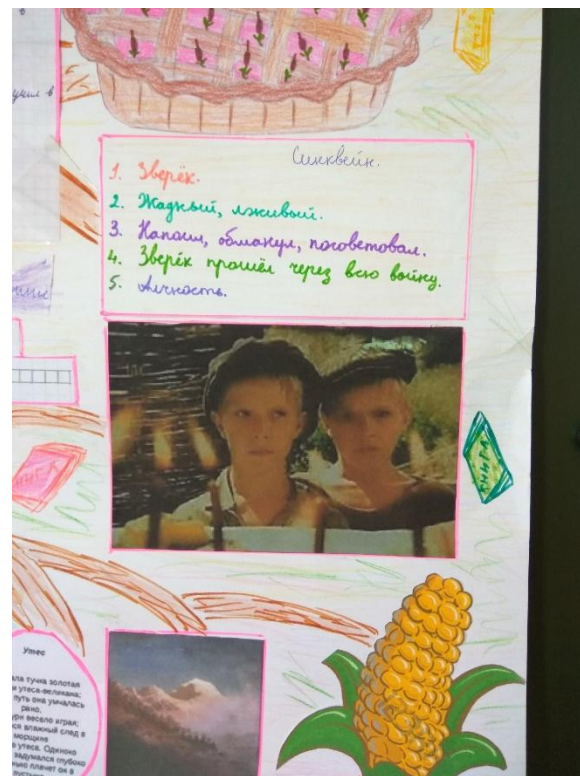 в
Синквейн.
1. Зверёк.
2. Жадный, лживый.
3. Напоил, обманул, посоветовал.
4. Зверёк прошёл через всю войну.
5. Алчность.
Утес
ла тучка золотая
утеса-великана;
путь она умчалась
рано,
ури весело играя;
ся влажный след в
морщине
утеса. Одиноко
задумался глубоко
ько плачет он в
пустыне